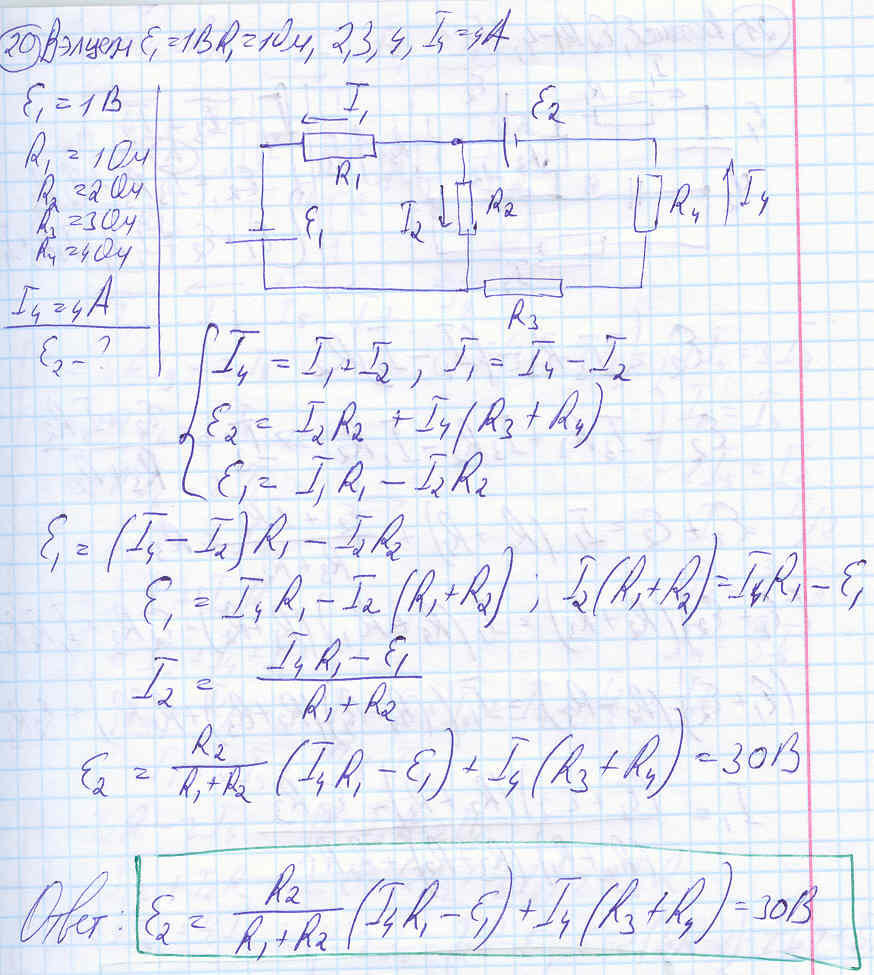 20 В эл цепи ℰ₁ = 1В R₁ = 1Ом, 2, 3, 4, I₄ = 4А
ℰ₁ = 1В
R₁ = 1Ом
R₂ = 2Ом
R₃ = 3Ом
R₄ = 4Ом
I₄ = 4А
ℰ₂ - ?
I₁
ℰ₂
R₁
ℰ₁
I₂
R₂
R₄
I₄
R₃
I₄ = I₁ + I₂ , I₁ = I₄ - I₂
ℰ₂ = I₂R₂ + I₄(R₃ + R₄)
ℰ₁ = I₁R₁ - I₂R₂
ℰ₁ = (I₄ - I₂)R₁ - I₂R₂
ℰ₁ = I₄R₁ - I₂(R₁+R₂) ; I₂(R₁+R₂) = I₄R₁ - ℰ₁
I₂ = (I₄R₁ - ℰ₁)/(R₁ + R₂)
ℰ₂ = R₂/(R₁+R₂) (I₄R₁ - ℰ₁) + I₄(R₃ + R₄) = 30В
Ответ: ℰ₂ = R₂/(R₁+R₂) (I₄R₁ - ℰ₁) + I₄(R₃ + R₄) = 30В